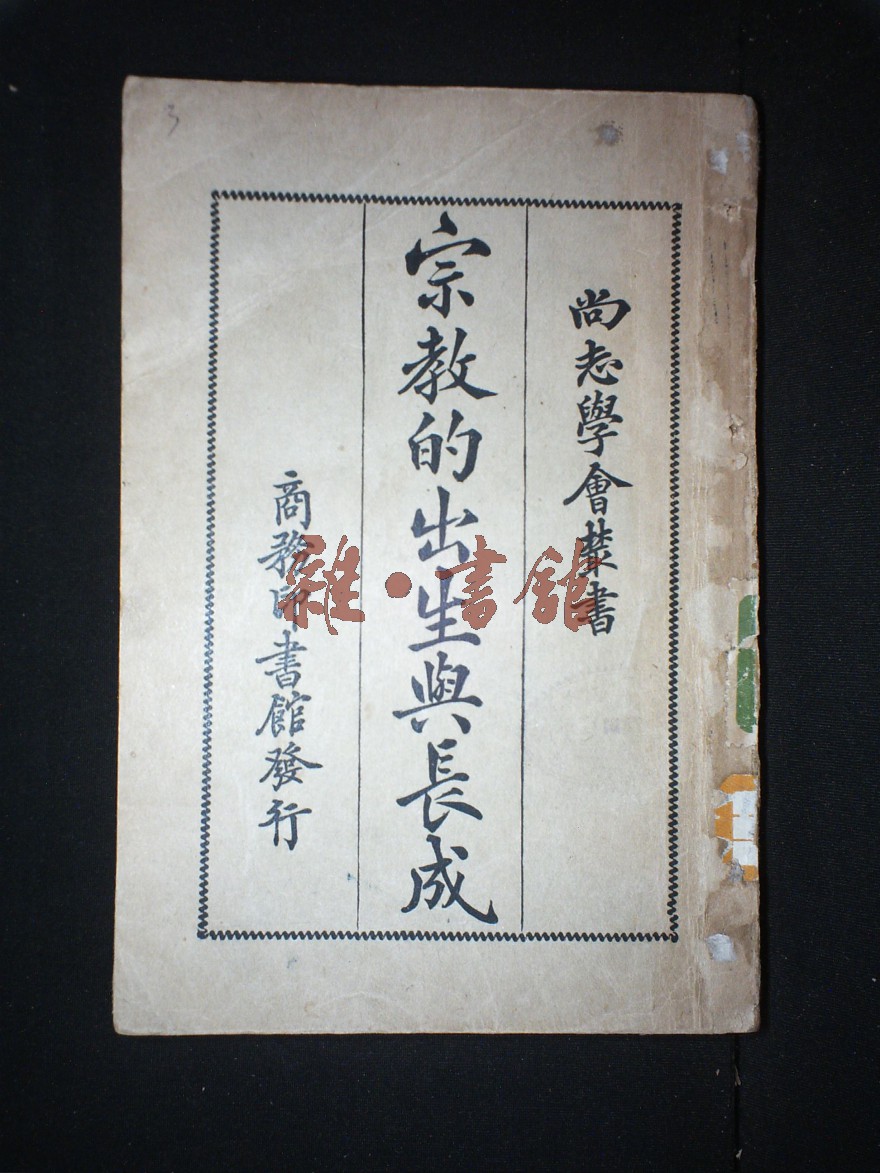 尚志學會叢書
宗教的出生與長成
商務印書館發行
雜·書館
3